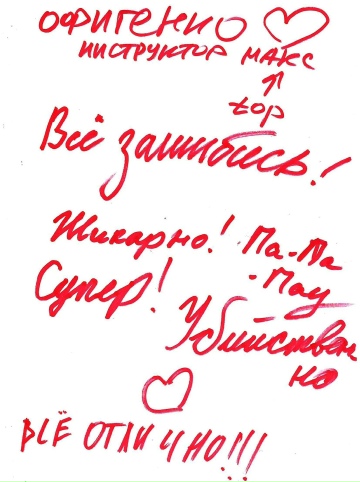 ОФИГЕННО ♡
ИНСТРУКТОР МАКС
↑
top
Всё зашибись!
Шикарно! Па-Па
Супер! -Пау
Убийствен
но
♡
ВСЁ ОТЛИЧНО!!!